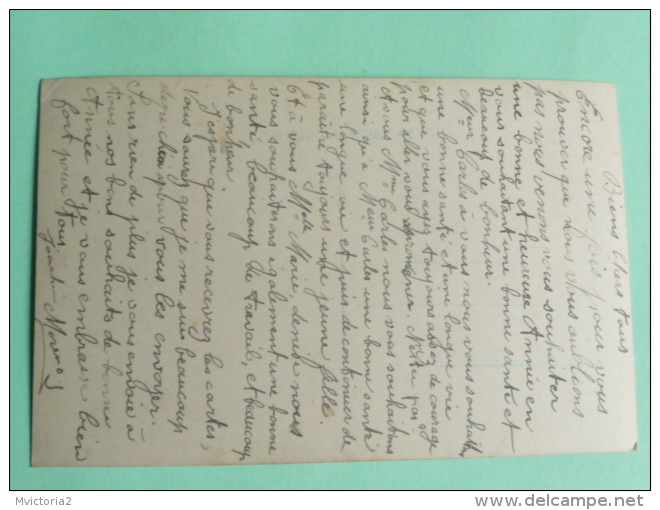 Biens chers tous
Encore une fois pour vous
prouver que nous vous oublions
pas nous venons vous souhaiter
une bonne et heureuse Année en
vous souhaitant une bonne santé et
beaucoup de bonheur.
Meur Carles à vous nous vous souhaitons
une bonne santé et une longue vie
et que vous ayez toujours assez de courage
pour aller vous promener. N'est-ce pas?
A vous Mme Carles nous vous souhaitons
ainsi qu'a Meur Carles une bonne santé
une longue vie et puis de continuer de
paraître toujours une jeune fille.
Et à vous Mlle Marie, denise nous
vous souhaiterons également une bonne
santé beaucoup de travail, et beaucoup
de bonheur.
J'espère que vous recevrez les cartes,
Vous savez que je me suis beaucoup
pour vous les envoyer.
Sans rien de plus je vous envoie à
tous nos bons souhaits de bonne
Année et je vous embrasse bien
fort pour tous
Mvictoria2
www.delcampe.net